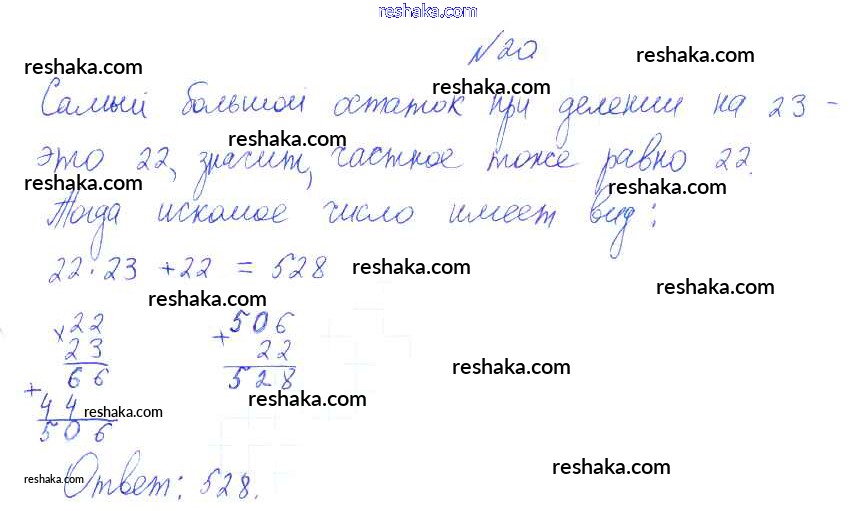 reshaka.com
№20
reshaka.com reshaka.com
Самый большой остаток при делении на 23 -
reshaka.com
reshaka.com
это 22, значит, частное тоже равно 22.
reshaka.com reshaka.com
Тогда искомое число имеет вид:
22 · 23 + 22 = 528 reshaka.com
reshaka.com reshaka.com
× 22 + 506
23 22
66 528
reshaka.com
+ 44 reshaka.com reshaka.com
506
reshaka.com
reshaka.com Ответ: 528.